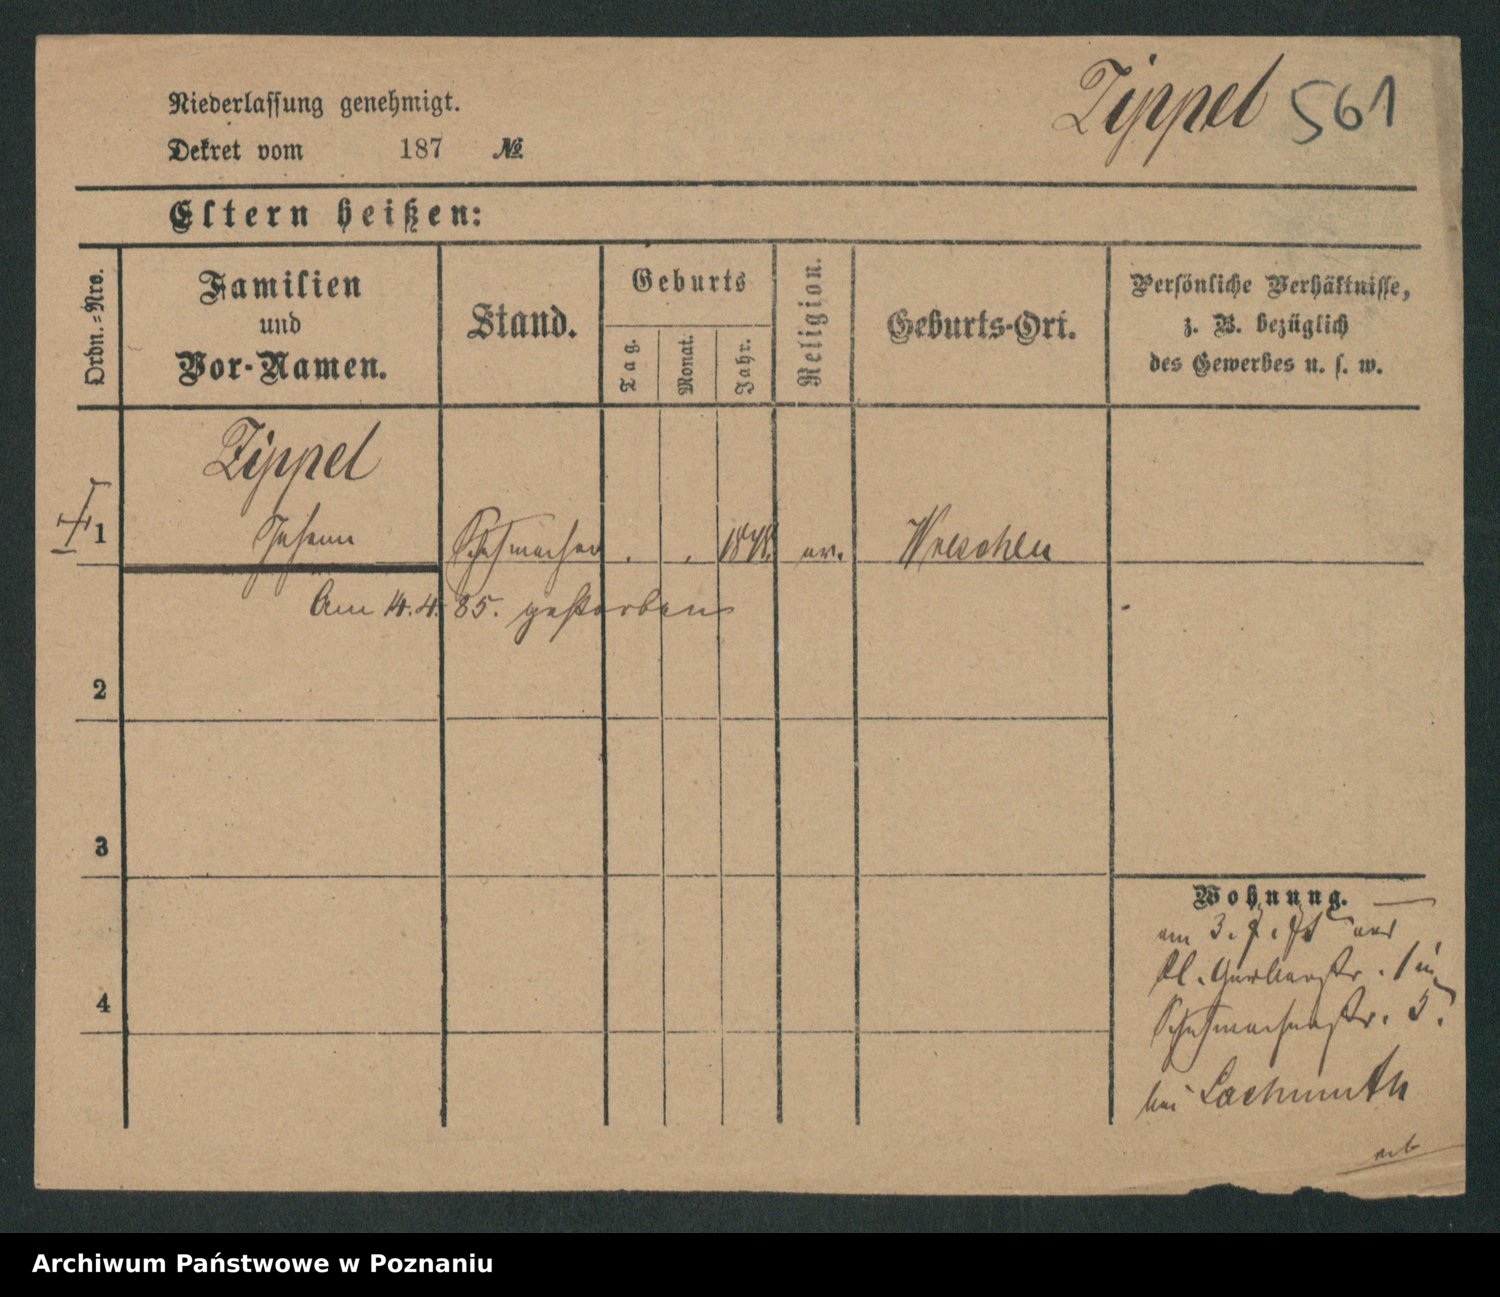 Zippel 561
Niederlassung genehmigt.
Dekret vom 187 №
Eltern heißen:
Ordn.-Nro.
Familien
und
Vor-Namen.
Stand.
Geburts
Tag.
Monat.
Jahr.
Religion.
Geburts-Ort.
Persönliche Verhältnisse,
z. B. bezüglich
des Gewerbes u. s. w.
Zippel
1 Johann Schuhmacher . . ev. Wreschen
Am 14.4. 85. gestorben
2
3
4
Wohnung.
am 3. 7. aus
Kl. Gerberstr. 1 in
Schuhmacherstr. 5.
bei Lachmuth
Archiwum Państwowe w Poznaniu